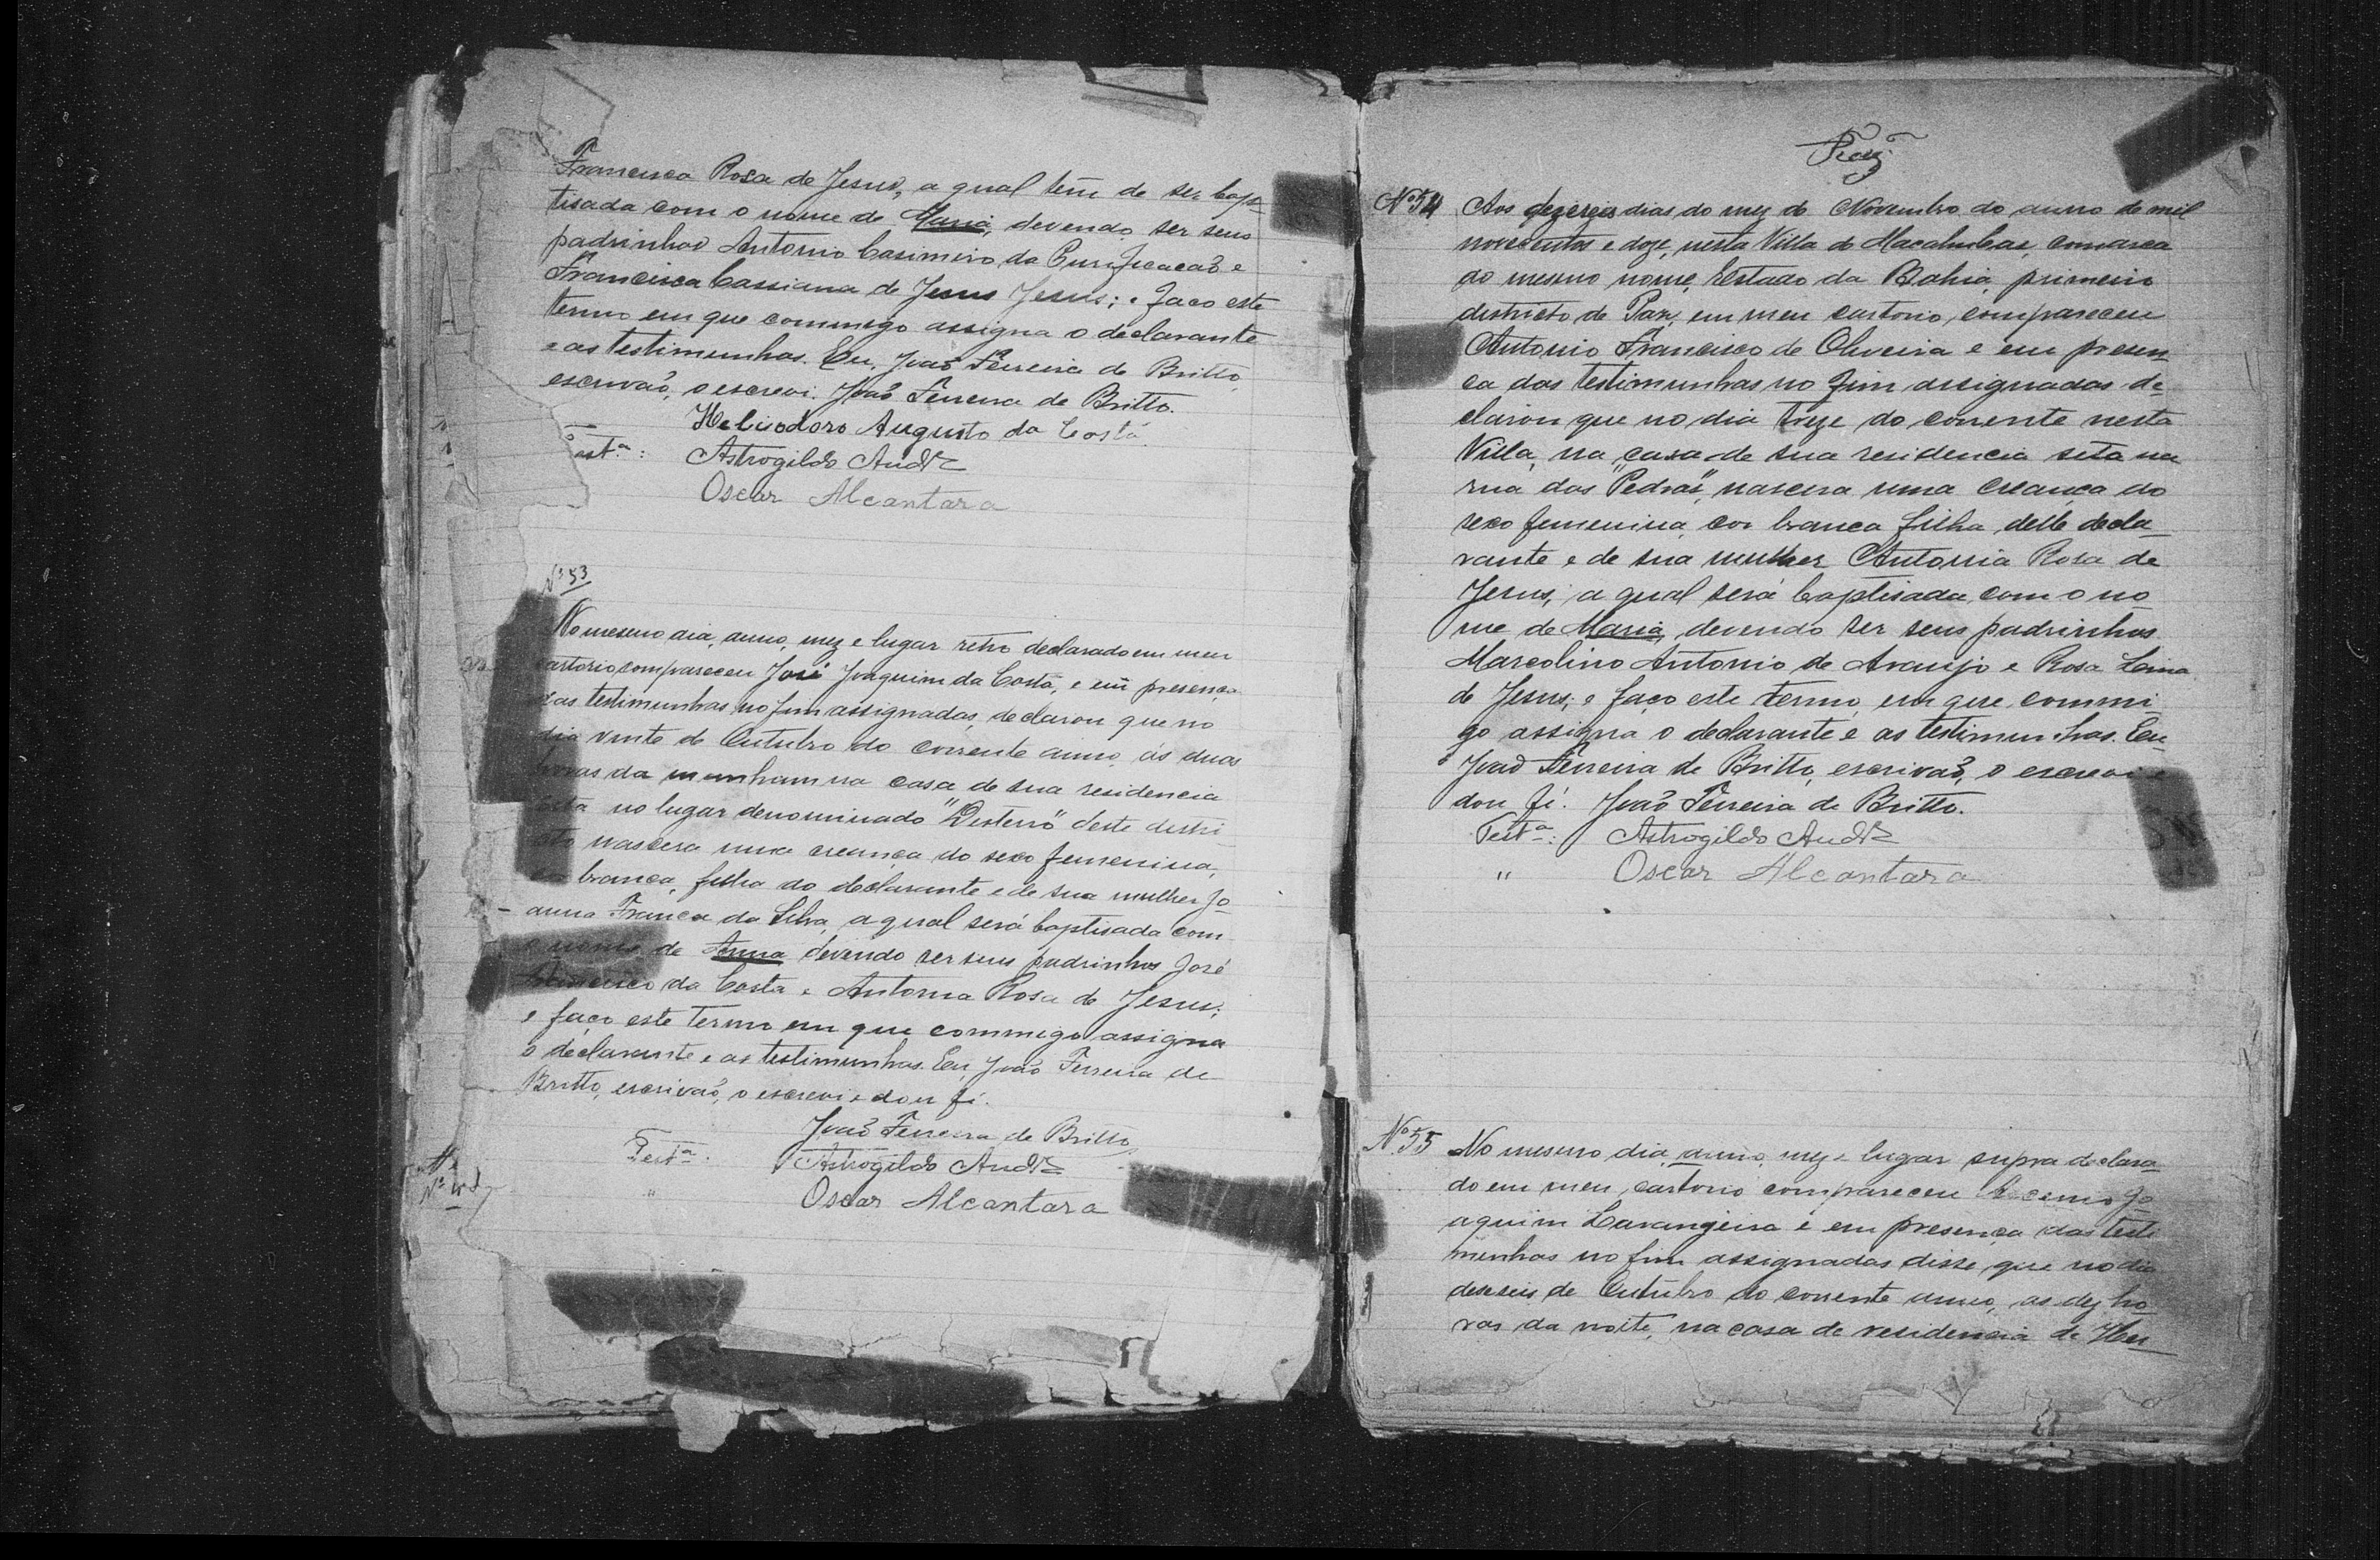 Francisca Rosa de Jesus, a qual tem de ser bap-
tisada com o nome de Maria, devendo ser seus
padrinhos Antonio Casimiro da Purificacaõ e
Francisca Cassiana de Jesus Jesus; e faco este
termo em que commigo assigna o declarante
e as testimunhas. Eu, Joaõ Ferreira de Britto,
escrivaõ, o escrevi. Joaõ Ferreira de Britto.
Heliodoro Augusto da Costa
Astrogildo
Oscar Alcantara
Nº 53
No mesmo dia, anno, mez e lugar retro declarado em meu
cartorio compareceu José Joaquim da Costa, e em presença
das testimunhas no fim assignadas, declarou que no
dia vinte de Outubro do corrente anno, ás duas
horas da manham na casa de sua residencia
no lugar denominado "Desterro" deste distri-
cto nascera uma creança do sexo femenina,
branca, filha do declarante e de sua mulher Jo-
anna Franca da Silva, a qual será baptisada com
o nome de Anna devendo ser seus padrinhos José
da Costa e Antonia Rosa de Jesus;
e faço este termo em que commigo assigna
o declarante e as testimunhas. Eu, Joaõ Ferreira de
Britto, escrivaõ, o escrevi e dou fé.
Joaõ Ferreira de Britto
Testª. Astrogildo
" Oscar Alcantara
Nº 54 Aos dezeseis dias do mez de Novembro do anno de mil
novecentos e doze, nesta Villa de Macahubas, comarca
do mesmo nome, Estado da Bahia, primeiro
districto de Paz, em meu cartorio, compareceu
Antonio Francisco de Oliveira e em presen-
ca das testimunhas no fim assignadas de-
clarou que no dia treze do corrente nesta
Villa, na casa de sua residencia sita na
rua das "Pedras", nascera uma creança do
sexo femenina, cor branca filha delle decla-
rante e de sua mulher Antonia Rosa de
Jesus, a qual será baptisada com o no-
me de Maria, devendo ser seus padrinhos
Marcolino Antonio de Araujo e Rosa
de Jesus; e faço este termo, em que commi-
go assigna o declarante e as testimunhas. Eu
Joaõ Ferreira de Britto, escrivaõ, o escrevi e
dou fé. Joaõ Ferreira de Britto.
Testª: Astrogildo
" Oscar Alcantara
Nº 55 No mesmo dia, anno, mez e lugar supra declara-
do em meu cartorio compareceu Jo-
aquim Larangeira e em presença das testi-
munhas no fim assignadas disse que no dia
deseseis de Outubro do corrente anno, as dez ho-
ras da noite, na casa de residencia de